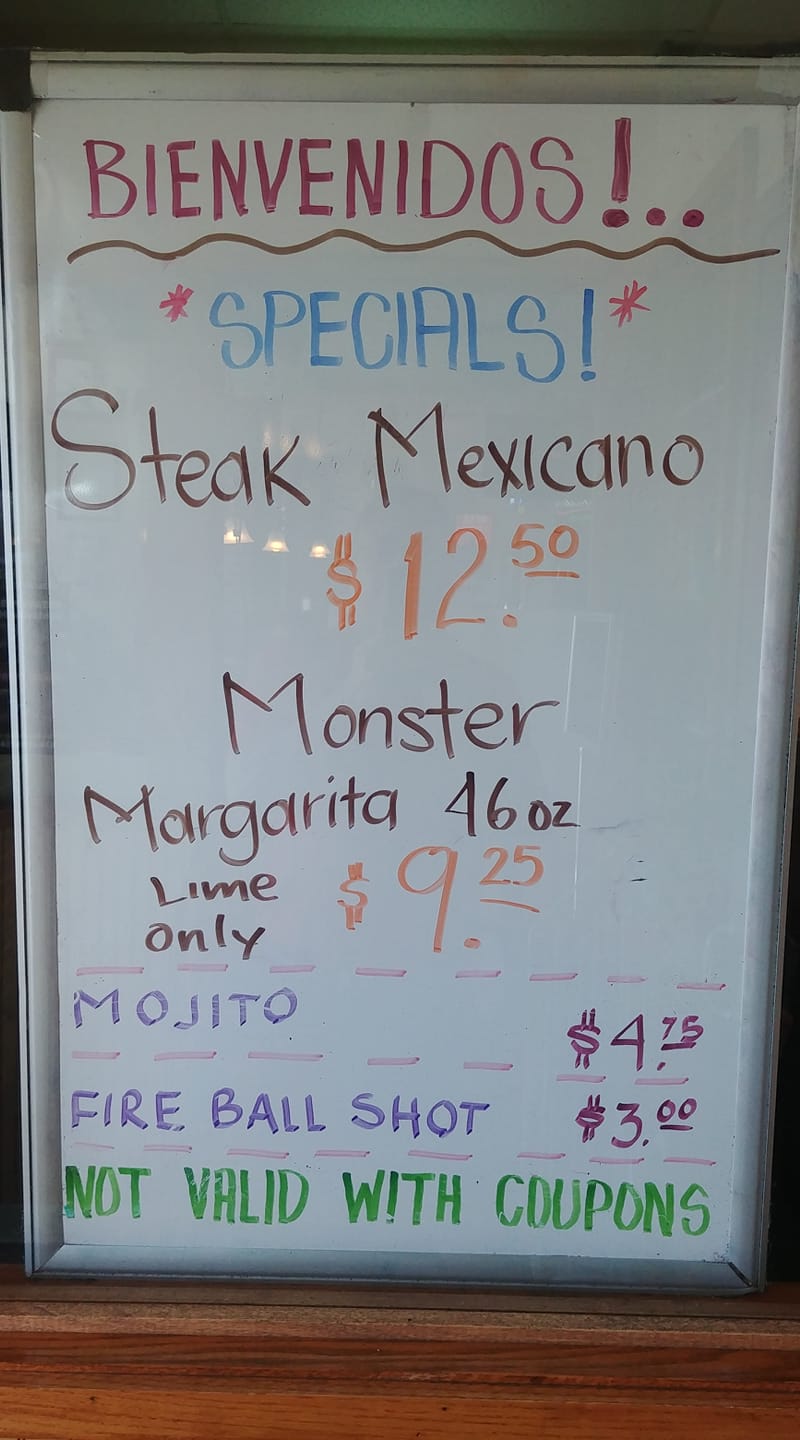 BIENVENIDOS!...
*SPECIALS!*
Steak Mexicano
$12.50
Monster
Margarita 46oz
Lime $9.25
only
MOJITO $4.75
FIRE BALL SHOT $3.00
NOT VALID WITH COUPONS